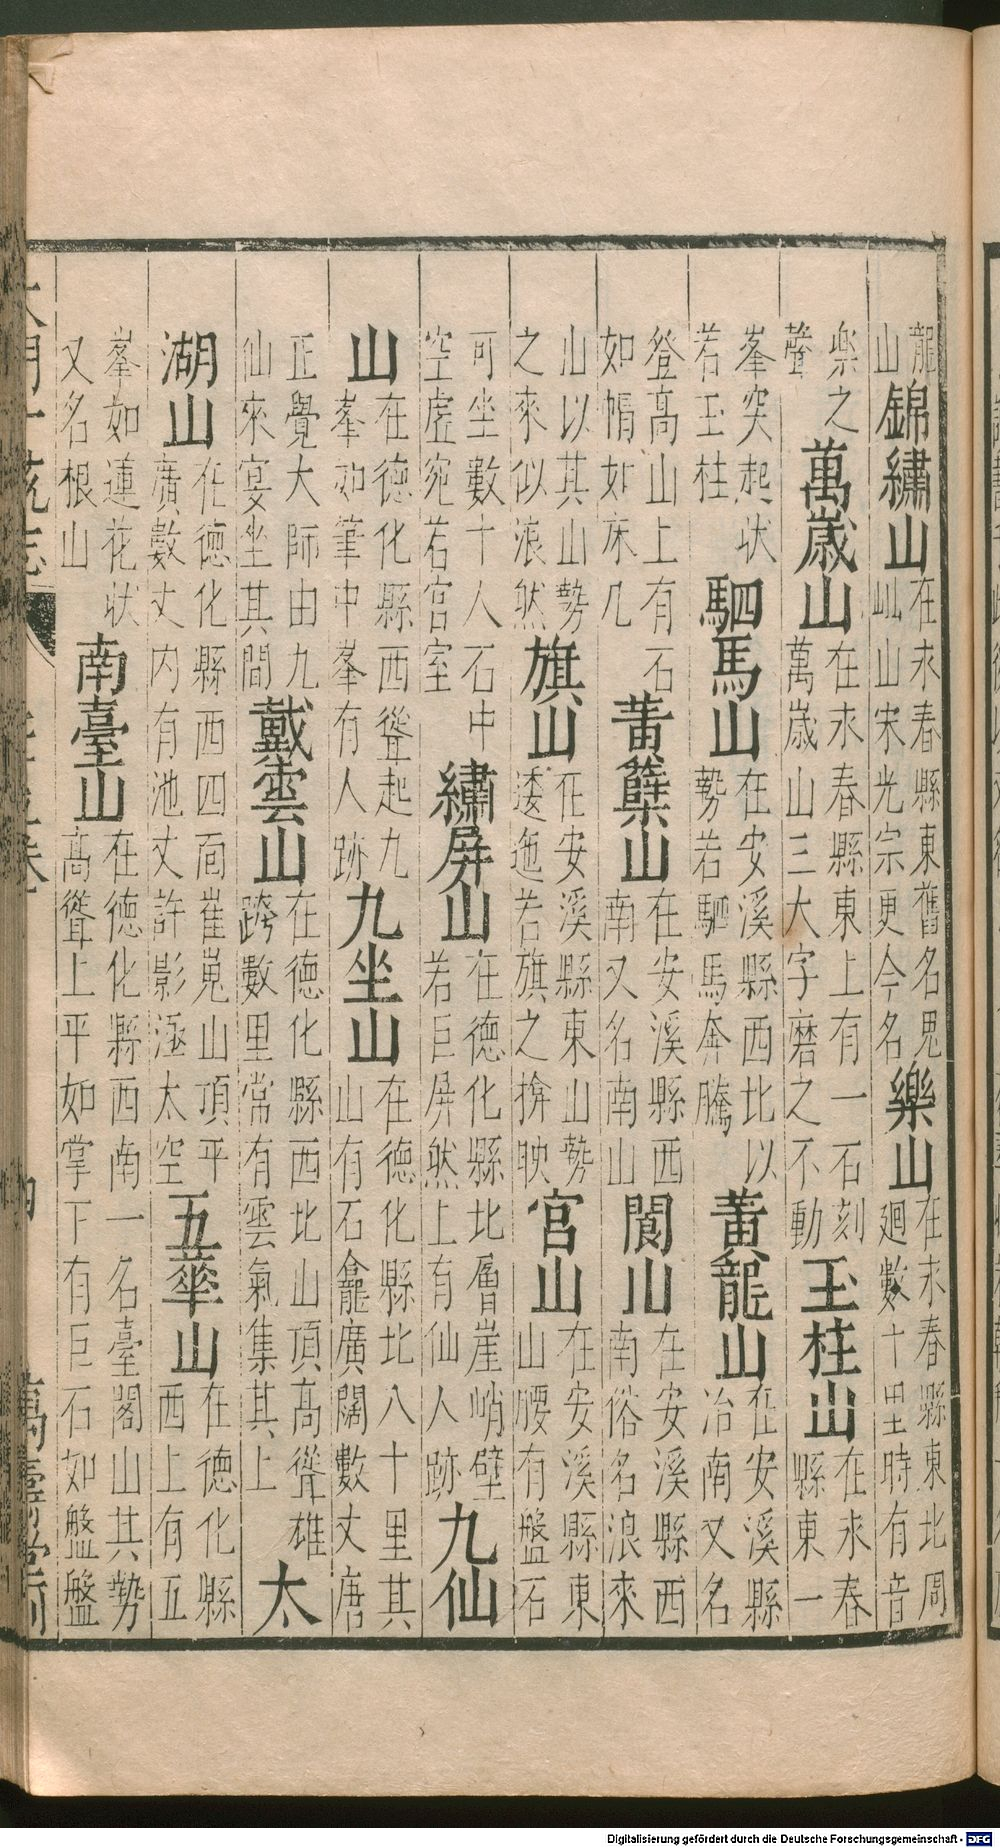 龍山錦繡山在永春縣東舊名鬼山宋光宗更今名樂山在永春縣東北周廻數十里時有音
樂之聲萬歲山在永春縣東上有一石刻萬歲山三大字磨之不動玉柱山在永春縣東一
峯突起狀若玉柱駟馬山在安溪縣西北以勢若駟馬奔騰黃龍山在安溪縣冶南又名
登高山上有石如幆如床几黃蘗山在安溪縣西南又名南山閬山在安溪縣西南俗名浪來
山以其山勢之來似浪然旗山在安溪縣東山勢逶迤若旗之揜映宮山在安溪縣東山腰有盤石
可坐數十人石中空虛宛若宮室繡屏山在德化縣北層崖峭壁若巨屏然上有仙人跡九仙
山在德化縣西聳起九峯如筆中峯有人跡九坐山在德化縣北八十里其山有石龕廣闊數丈唐
正覺大師由九仙來宴坐其間戴雲山在德化縣西北山頂高聳雄跨數里常有雲氣集其上太
湖山在德化縣西四面崔嵬山頂平廣數丈內有池丈許影涵太空五華山在德化縣西上有五
峯如蓮花狀又名根山南臺山在德化縣西南一名臺閣山其勢高聳上平如掌下有巨石如盤盤
大明一統志
四
萬壽堂刊
Digitalisierung gefördert durch die Deutsche Forschungsgemeinschaft - DFG